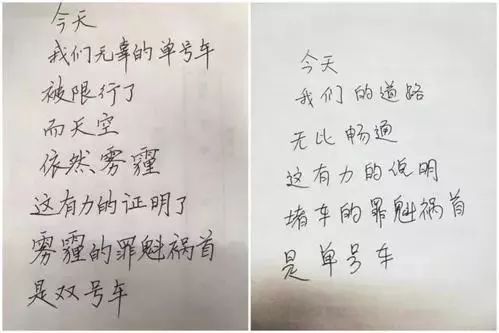 今天
我们无辜的单号车
被限行了
而天空
依然雾霾
这有力的证明了
雾霾的罪魁祸首
是双号车
今天
我们的道路
无比畅通
这有力的说明
堵车的罪魁祸首
是单号车